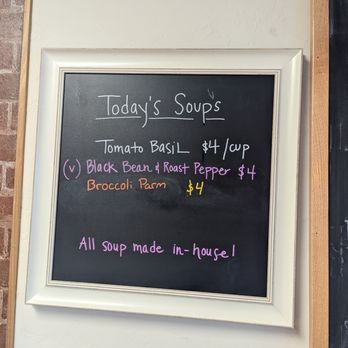 Today's Soups
Tomato Basil $4/cup
(v) Black Bean & Roast Pepper $4
Broccoli Parm $4
All soup made in-house!